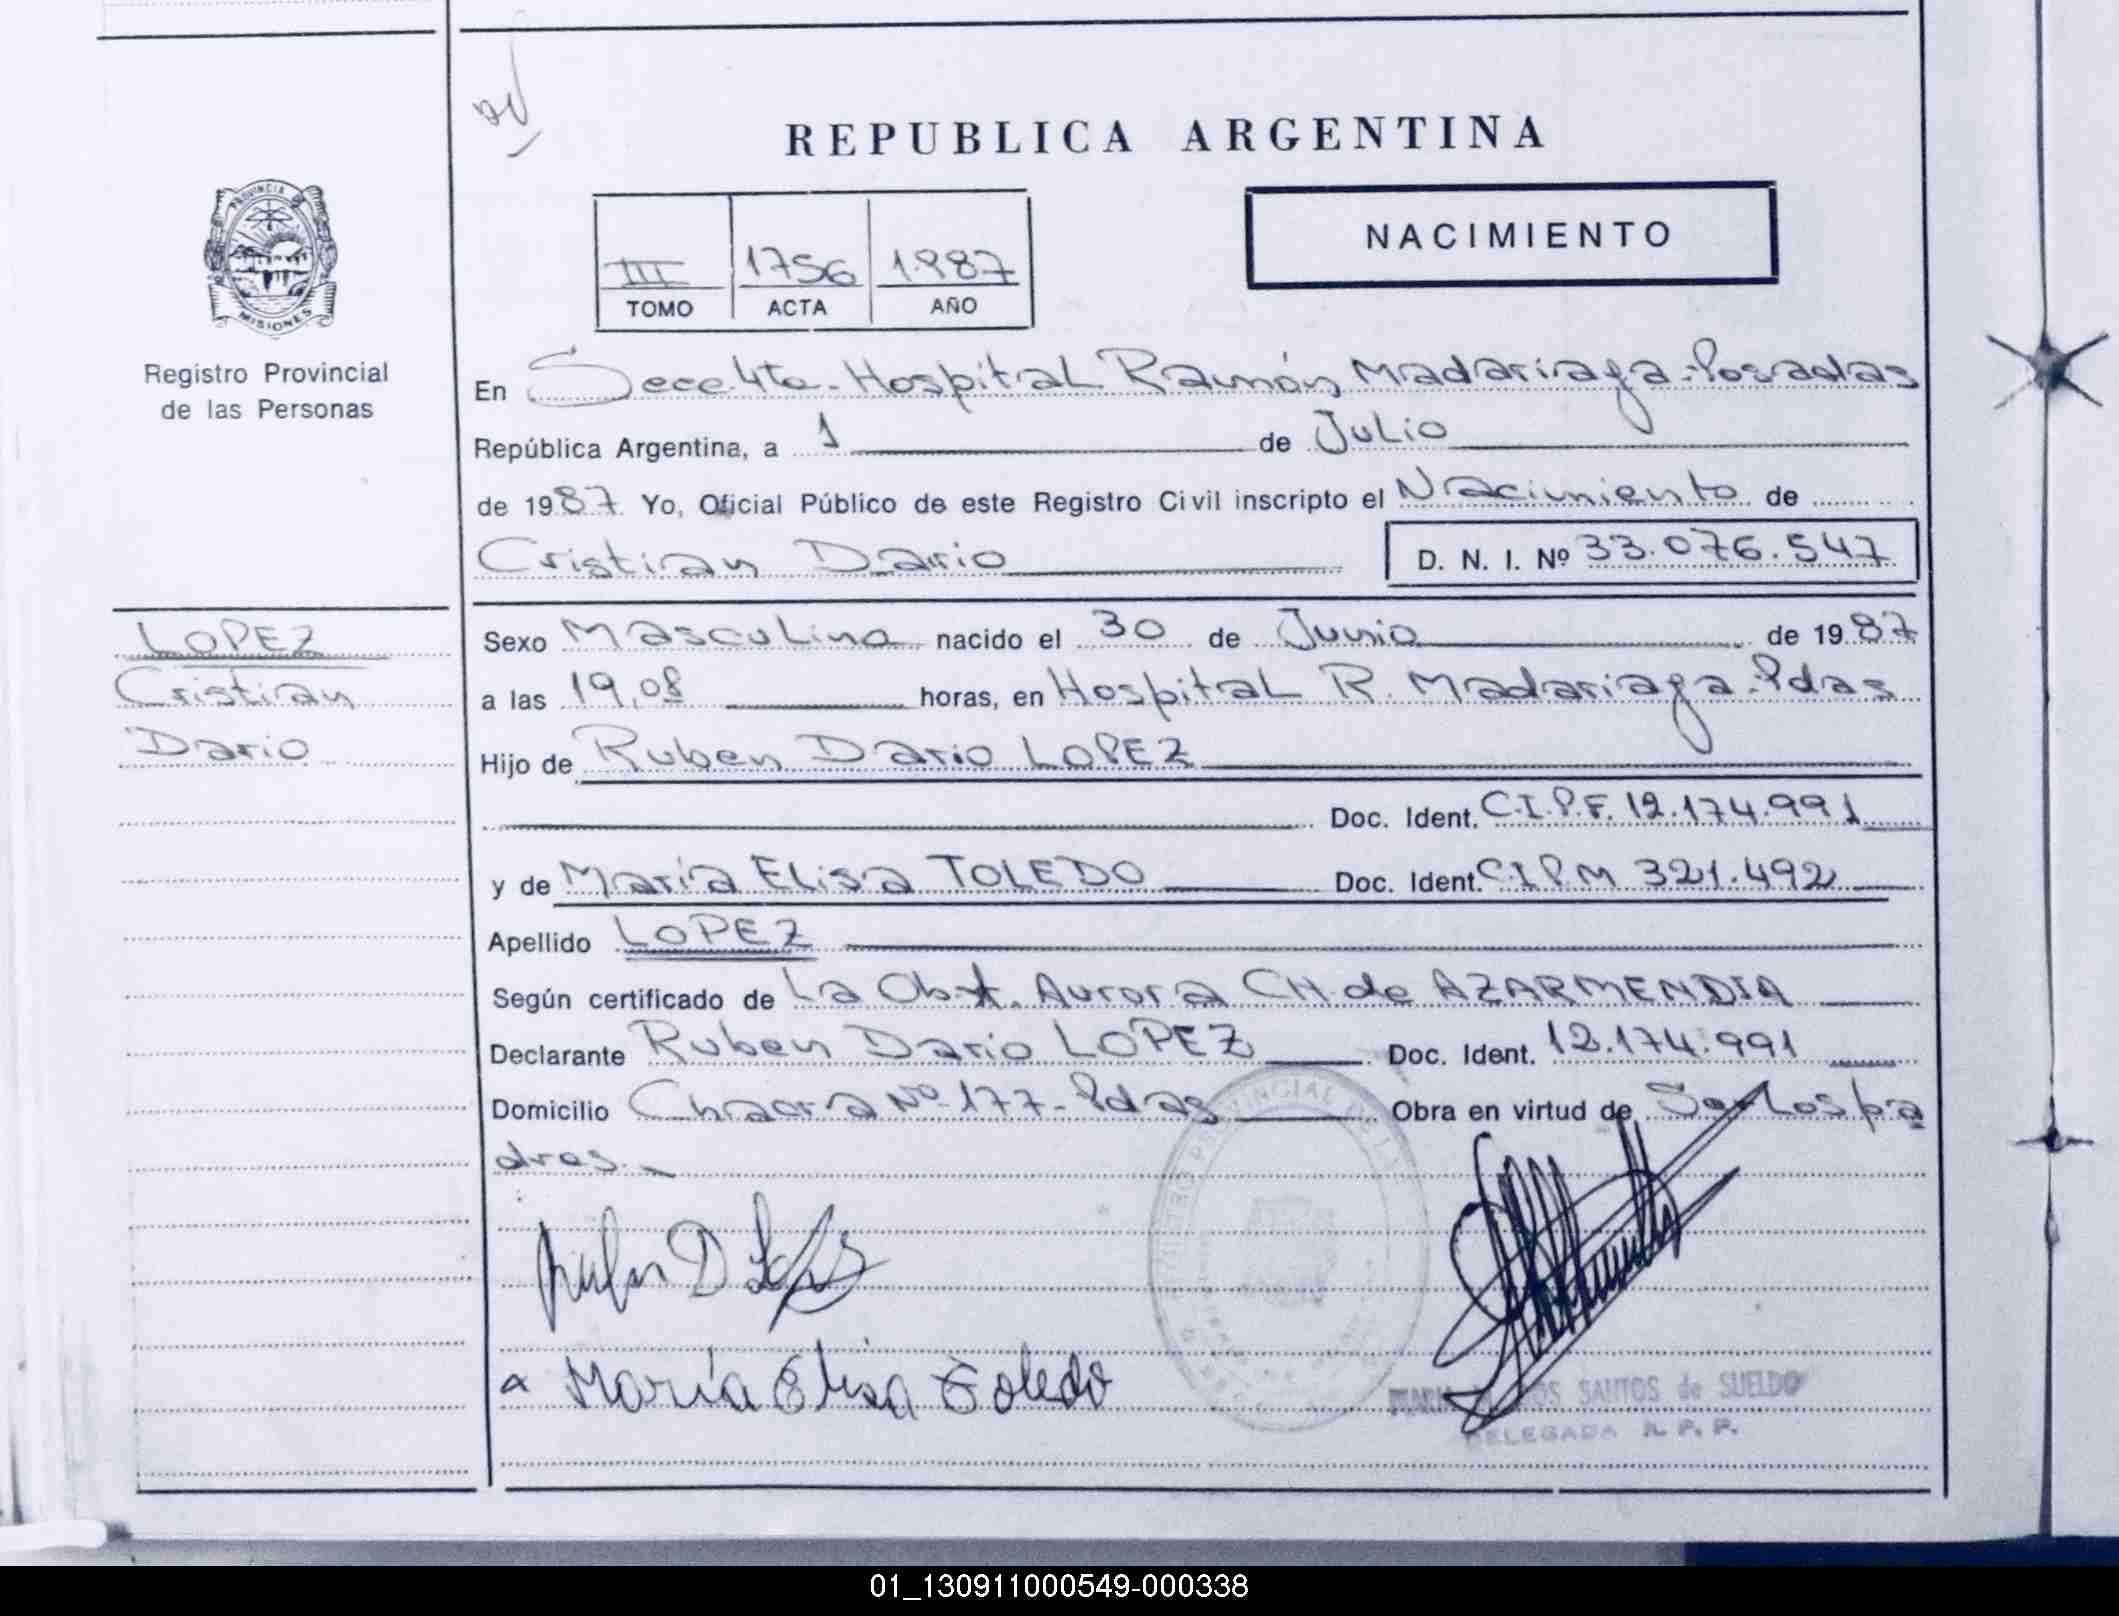 REPUBLICA ARGENTINA
PROVINCIA
MISIONES
Registro Provincial
de las Personas
NACIMIENTO
III 1756 1987
TOMO ACTA AÑO
En Secc. 4ta. Hospital Ramón Madariaga - Posadas
República Argentina, a 1 de Julio
de 1987 Yo, Oficial Público de este Registro Civil inscripto el Nacimiento de
Cristian Dario D. N. I. Nº 33.076.547
LOPEZ
Cristian
Dario
Sexo Masculino nacido el 30 de Junio de 1987
a las 19,08 horas, en Hospital R. Madariaga - Pdas
Hijo de Ruben Dario LOPEZ
Doc. Ident. C.I.P.F. 12.174.991
y de María Elisa TOLEDO Doc. Ident. C.I.P.M 321.492
Apellido LOPEZ
Según certificado de La Obst. Aurora CH de AZARMENDIA
Declarante Ruben Dario LOPEZ Doc. Ident. 12.174.991
Domicilio Chacra Nº 177 - Pdas Obra en virtud de Ser Los pa
dres.
Ruben D Lopez
María Elisa Toledo
SANTOS de SUELDO
DELEGADA R. P. P.
01_130911000549-000338